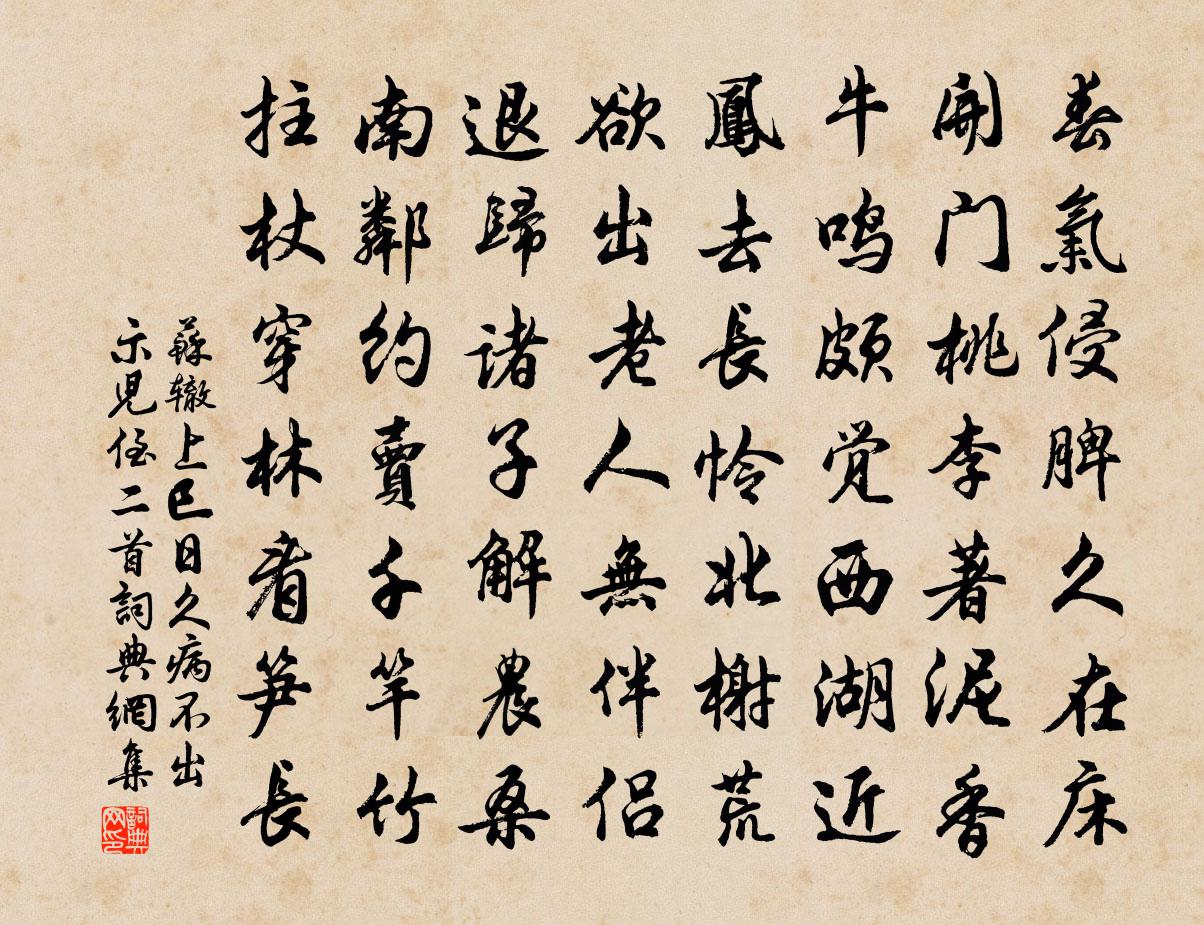 春氣侵脾久在床
開门桃李著泥香
牛鸣頗觉西湖近
鳳去長怜北榭荒
欲出老人無伴侣
退歸诸子解農桑
南鄰约賣千竿竹
拄杖穿林看笋長
蘇辙上巳日久病不出
示児侄二首詞典網集
詞典
网印